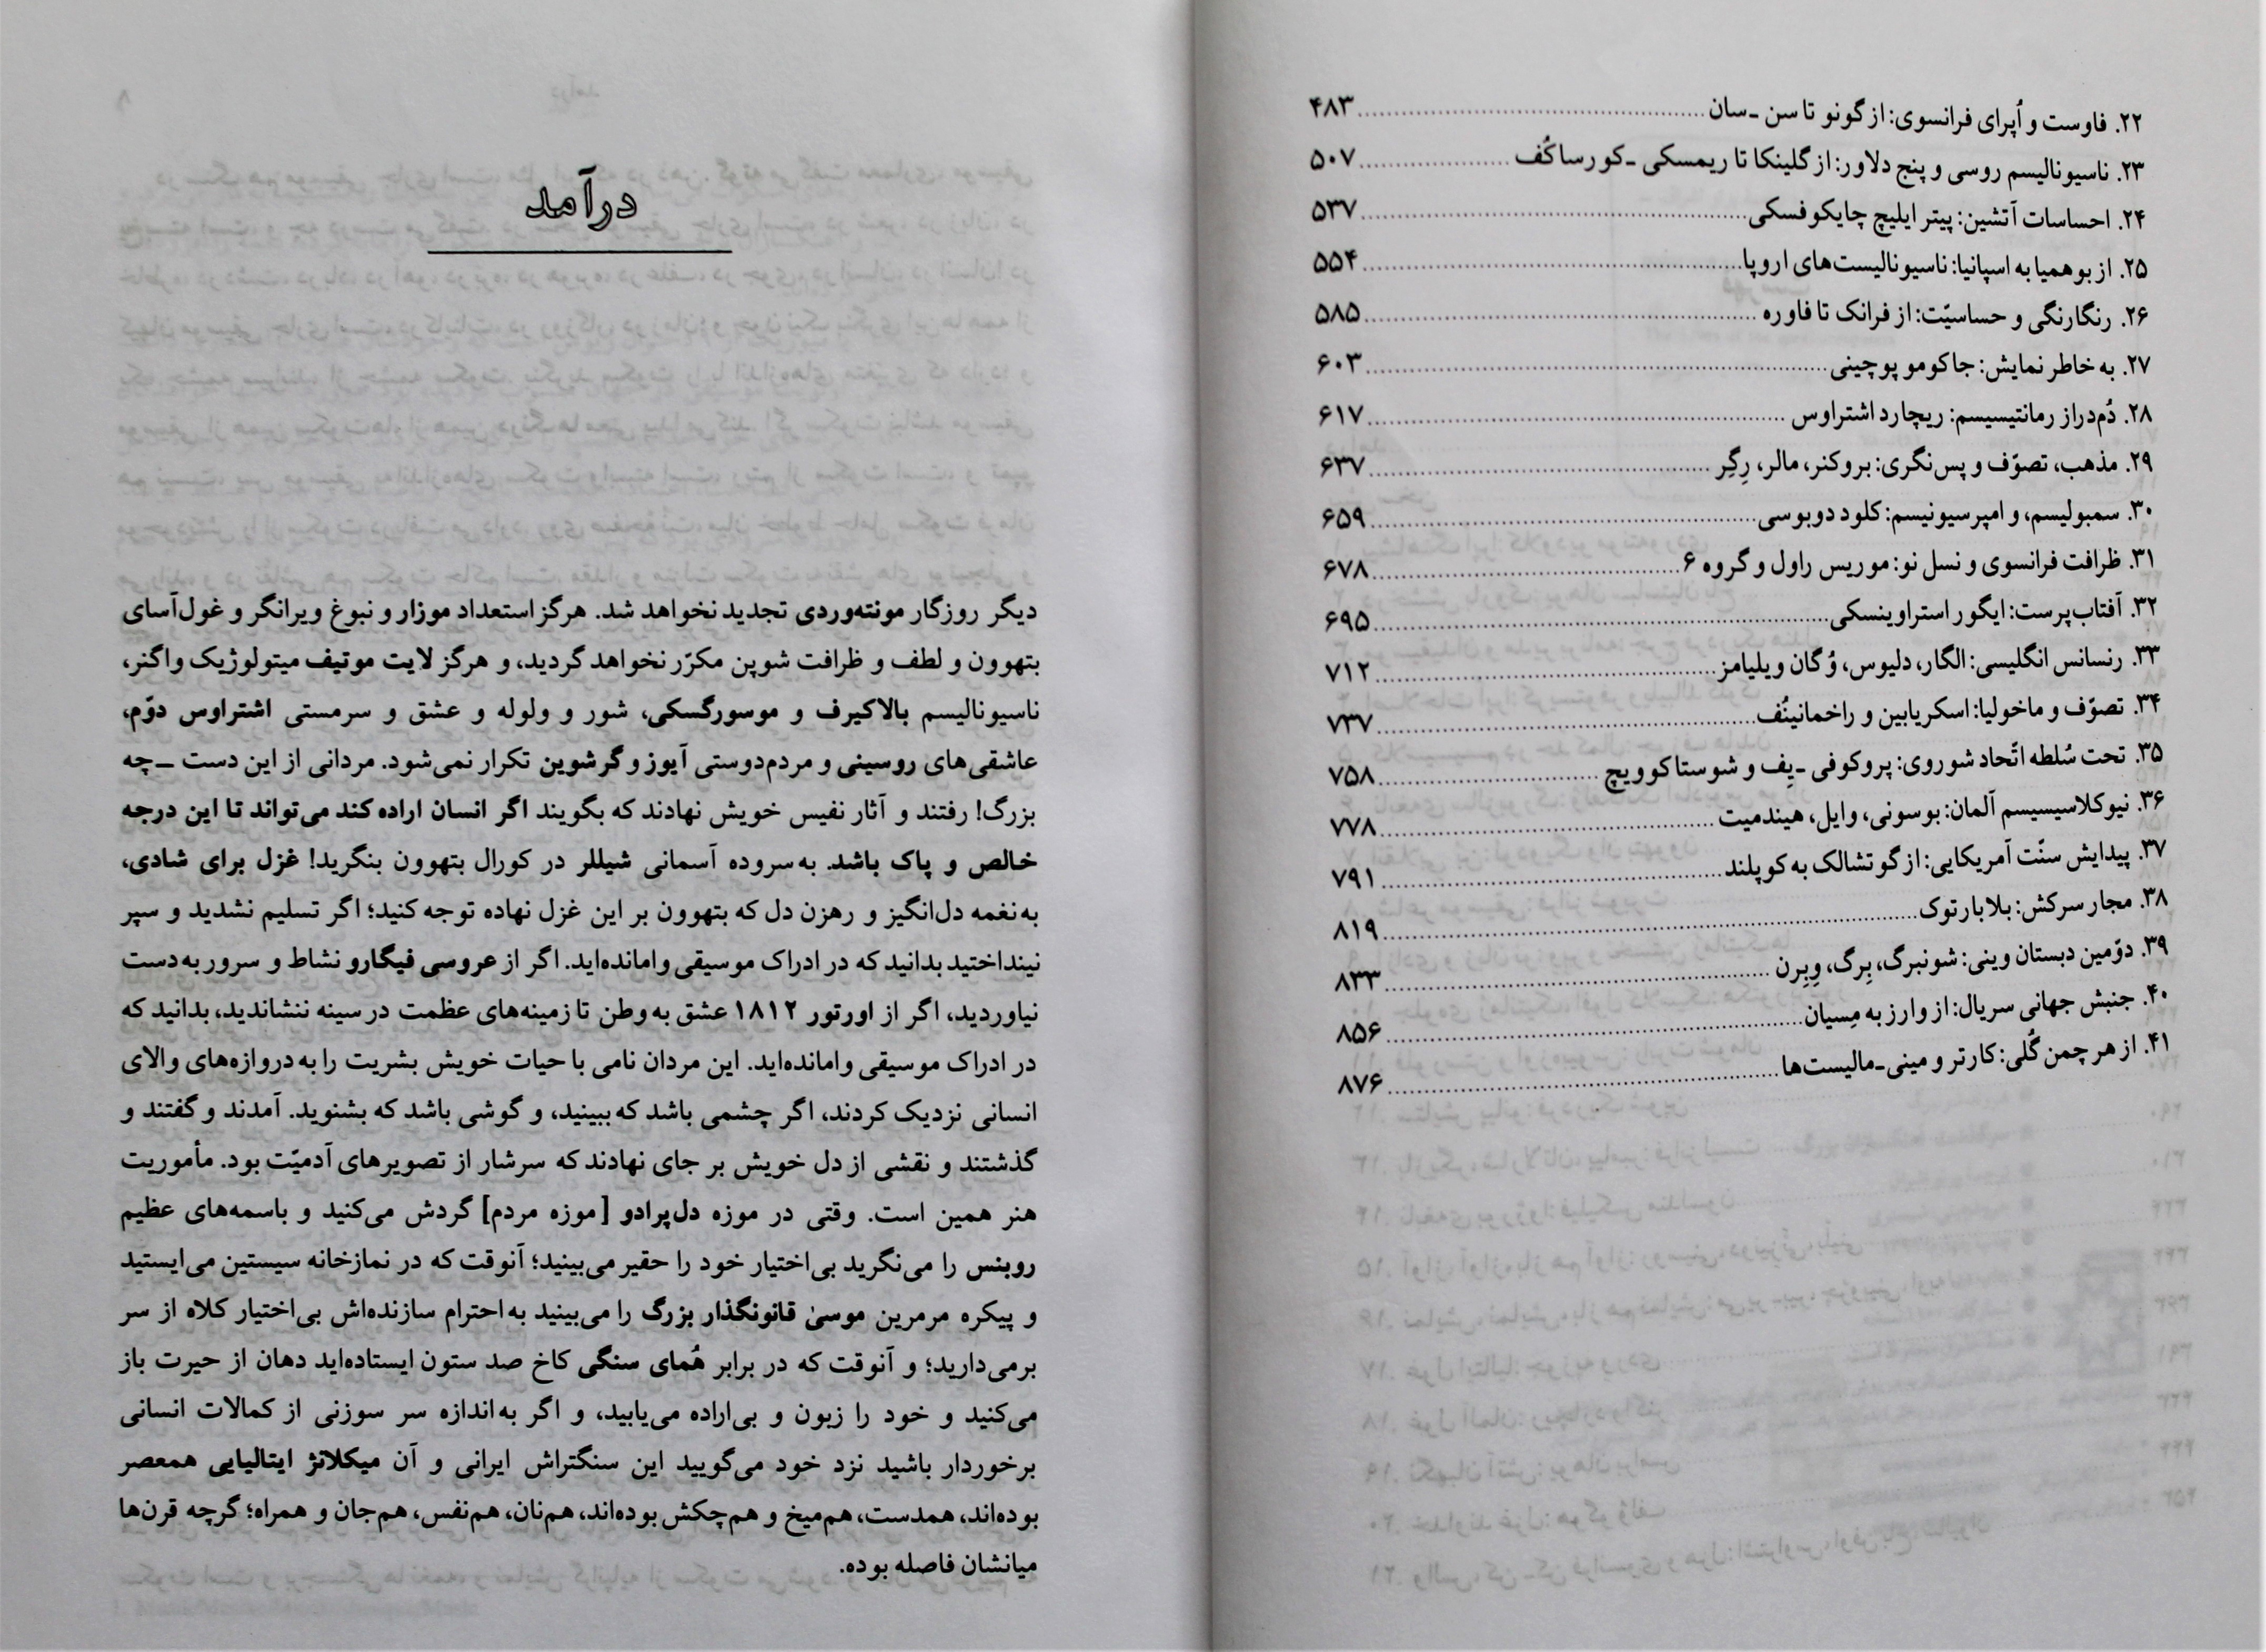 ۲۲. فاوست و اُپرای فرانسوی: از گونو تا سن ـ سان ........ ۴۸۳
۲۳. ناسیونالیسم روسی و پنج دلاور: از گلینکا تا ریمسکی ـ کورساکُف ........ ۵۰۷
۲۴. احساسات آتشین: پیتر ایلیچ چایکوفسکی ........ ۵۳۷
۲۵. از بوهمیا به اسپانیا: ناسیونالیست‌های اروپا ........ ۵۵۴
۲۶. رنگارنگی و حساسیّت: از فرانک تا فاوره ........ ۵۸۵
۲۷. به خاطر نمایش: جاکومو پوچینی ........ ۶۰۳
۲۸. دُم‌دراز رمانتیسیسم: ریچارد اشتراوس ........ ۶۱۷
۲۹. مذهب، تصوّف و پس‌نگری: بروکنر، مالر، رِگِر ........ ۶۳۷
۳۰. سمبولیسم، و امپرسیونیسم: کلود دوبوسی ........ ۶۵۹
۳۱. ظرافت فرانسوی و نسل نو: موریس راول و گروه ۶ ........ ۶۷۸
۳۲. آفتاب‌پرست: ایگور استراوینسکی ........ ۶۹۵
۳۳. رنسانس انگلیسی: الگار، دلیوس، وُگان ویلیامز ........ ۷۱۲
۳۴. تصوّف و ماخولیا: اسکریابین و راخمانینُف ........ ۷۳۷
۳۵. تحت سُلطه اتّحاد شوروی: پروکوفی ـ یِف و شوستاکوویچ ........ ۷۵۸
۳۶. نیوکلاسیسیسم آلمان: بوسونی، وایل، هیندمیت ........ ۷۷۸
۳۷. پیدایش سنّت آمریکایی: از گوتشالک به کوپلند ........ ۷۹۱
۳۸. مجار سرکش: بلا بارتوک ........ ۸۱۹
۳۹. دوّمین دبستان وینی: شونبرگ، بِرگ، وِبِرن ........ ۸۳۳
۴۰. جنبش جهانی سریال: از وارز به مِسیان ........ ۸۵۶
۴۱. از هر چمن گُلی: کارتر و مینی‌ـ‌مالیست‌ها ........ ۸۷۶
درآمد
دیگر روزگار مونته‌وردی تجدید نخواهد شد. هرگز استعداد موزار و نبوغ ویرانگر و غول‌آسای
بتهوون و لطف و ظرافت شوپن مکرّر نخواهد گردید، و هرگز لایت موتیف میتولوژیک واگنر،
ناسیونالیسم بالاکیرف و موسورگسکی، شور و ولوله و عشق و سرمستی اشتراوس دوّم،
عاشقی‌های روسینی و مردم‌دوستی آیوز و گرشوین تکرار نمی‌شود. مردانی از این دست ـ چه
بزرگ! رفتند و آثار نفیس خویش نهادند که بگویند اگر انسان اراده کند می‌تواند تا این درجه
خالص و پاک باشد. به سروده آسمانی شیللر در کورال بتهوون بنگرید! غزل برای شادی،
به نغمه دل‌انگیز و رهزن دل که بتهوون بر این غزل نهاده توجه کنید؛ اگر تسلیم نشدید و سپر
نینداختید بدانید که در ادراک موسیقی وامانده‌اید. اگر از عروسی فیگارو نشاط و سرور به دست
نیاوردید، اگر از اورتور ۱۸۱۲ عشق به وطن تا زمینه‌های عظمت در سینه ننشاندید، بدانید که
در ادراک موسیقی وامانده‌اید. این مردان نامی با حیات خویش بشریت را به دروازه‌های والای
انسانی نزدیک کردند، اگر چشمی باشد که ببینید، و گوشی باشد که بشنوید. آمدند و گفتند و
گذشتند و نقشی از دل خویش بر جای نهادند که سرشار از تصویرهای آدمیّت بود. مأموریت
هنر همین است. وقتی در موزه دل‌پرادو [موزه مردم] گردش می‌کنید و باسمه‌های عظیم
روبنس را می‌نگرید بی‌اختیار خود را حقیر می‌بینید؛ آنوقت که در نمازخانه سیستین می‌ایستید
و پیکره مرمرین موسیٰ قانونگذار بزرگ را می‌بینید به احترام سازنده‌اش بی‌اختیار کلاه از سر
برمی‌دارید؛ و آنوقت که در برابر هُمای سنگی کاخ صد ستون ایستاده‌اید دهان از حیرت باز
می‌کنید و خود را زبون و بی‌اراده می‌یابید، و اگر به اندازه سر سوزنی از کمالات انسانی
برخوردار باشید نزد خود می‌گویید این سنگتراش ایرانی و آن میکلانژ ایتالیایی همعصر
بوده‌اند، همدست، هم‌میخ و هم‌چکش بوده‌اند، هم‌نان، هم‌نفس، هم‌جان و همراه؛ گرچه قرن‌ها
میانشان فاصله بوده.